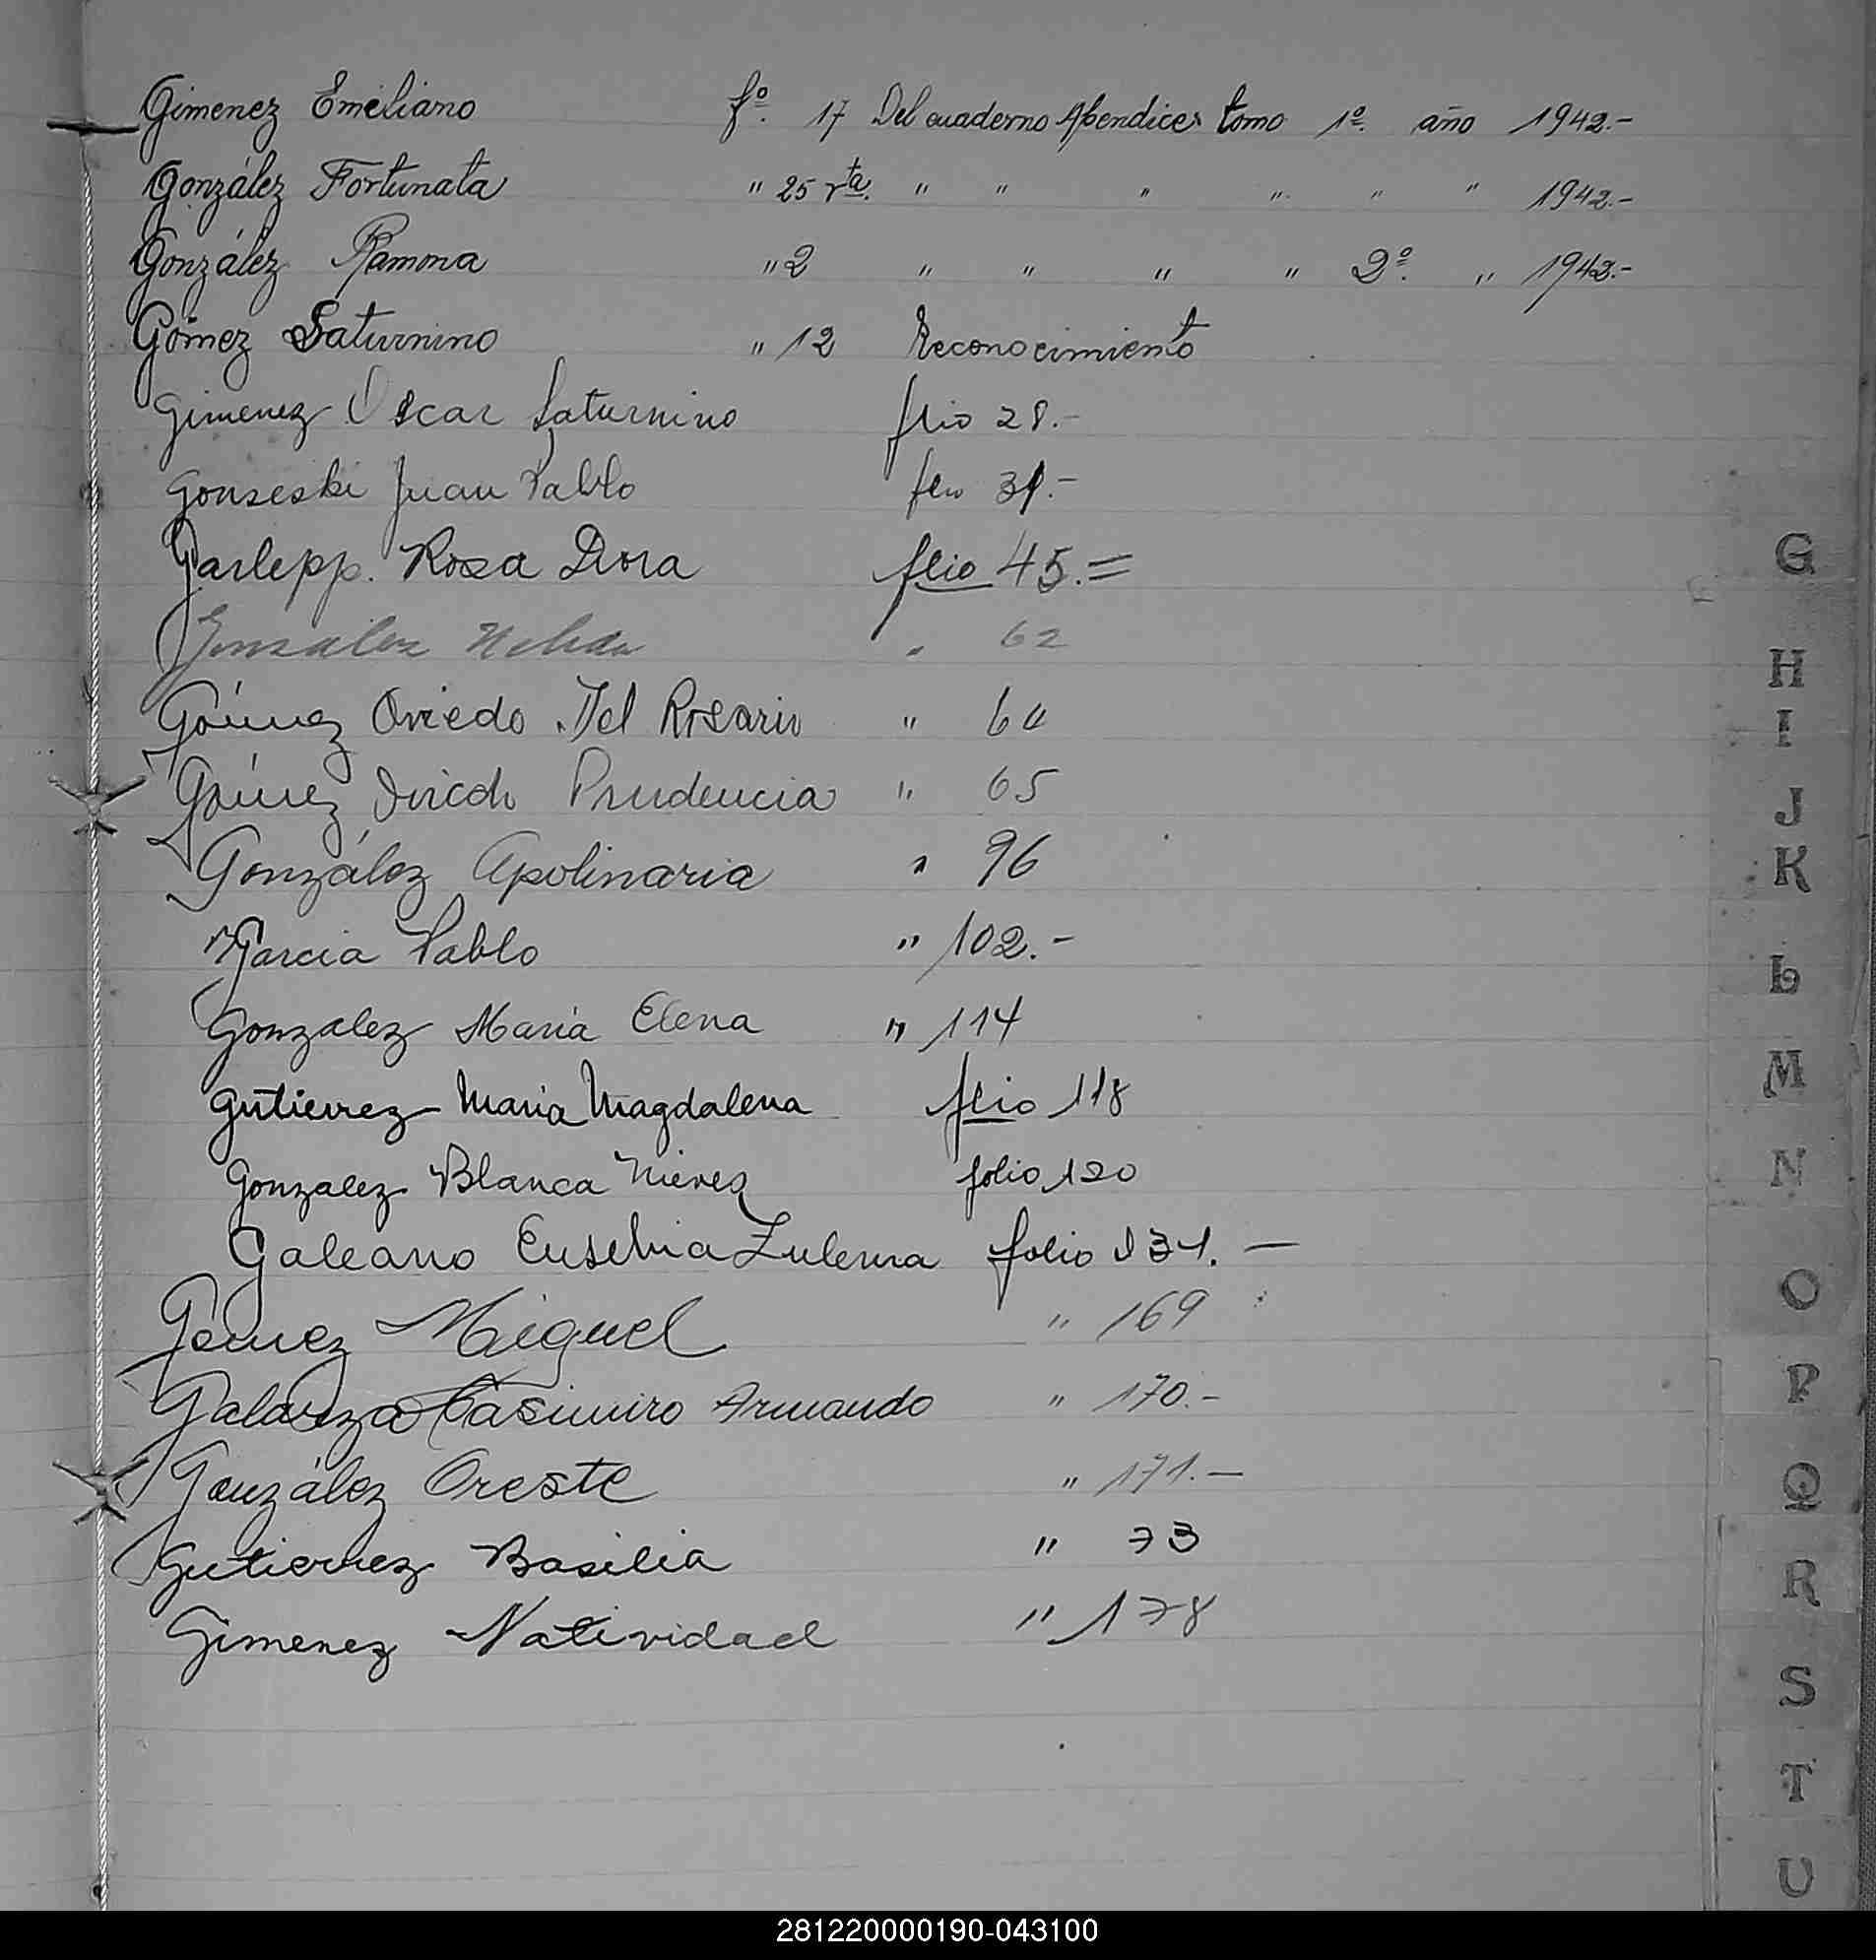 Gimenez Emeliano fº. 17 Del cuaderno Apendices tomo 1º. año 1942.-
González Fortunata " 25 vta. " " " " " " 1942.-
González Ramona " 2 " " " " 2º. " 1942.-
Gómez Saturnino " 12 Reconocimiento
Gimenez Oscar Saturnino flio 28.-
Gonseski Juan Pablo flio 31.-
Garlepp. Rosa Dora flio 45.=
Gonzalez Nelida " 62
Gómez Oviedo Del Rosario " 64
Gómez Oviedo Prudencia " 65
González Apolinaria " 96
Garcia Pablo " 102.-
Gonzalez Maria Elena " 114
Gutierrez Maria Magdalena flio 118
Gonzalez Blanca Nieves folio 120
Galeano Eusebia Zulema folio 131.—
Gomez Miguel " 169
Galarza Casimiro Armando " 170.-
González Oreste " 171.—
Gutierrez Basilia " 73
Gimenez Natividad " 178
G
H
I
J
K
L
M
N
O
P
Q
R
S
T
U
281220000190-043100